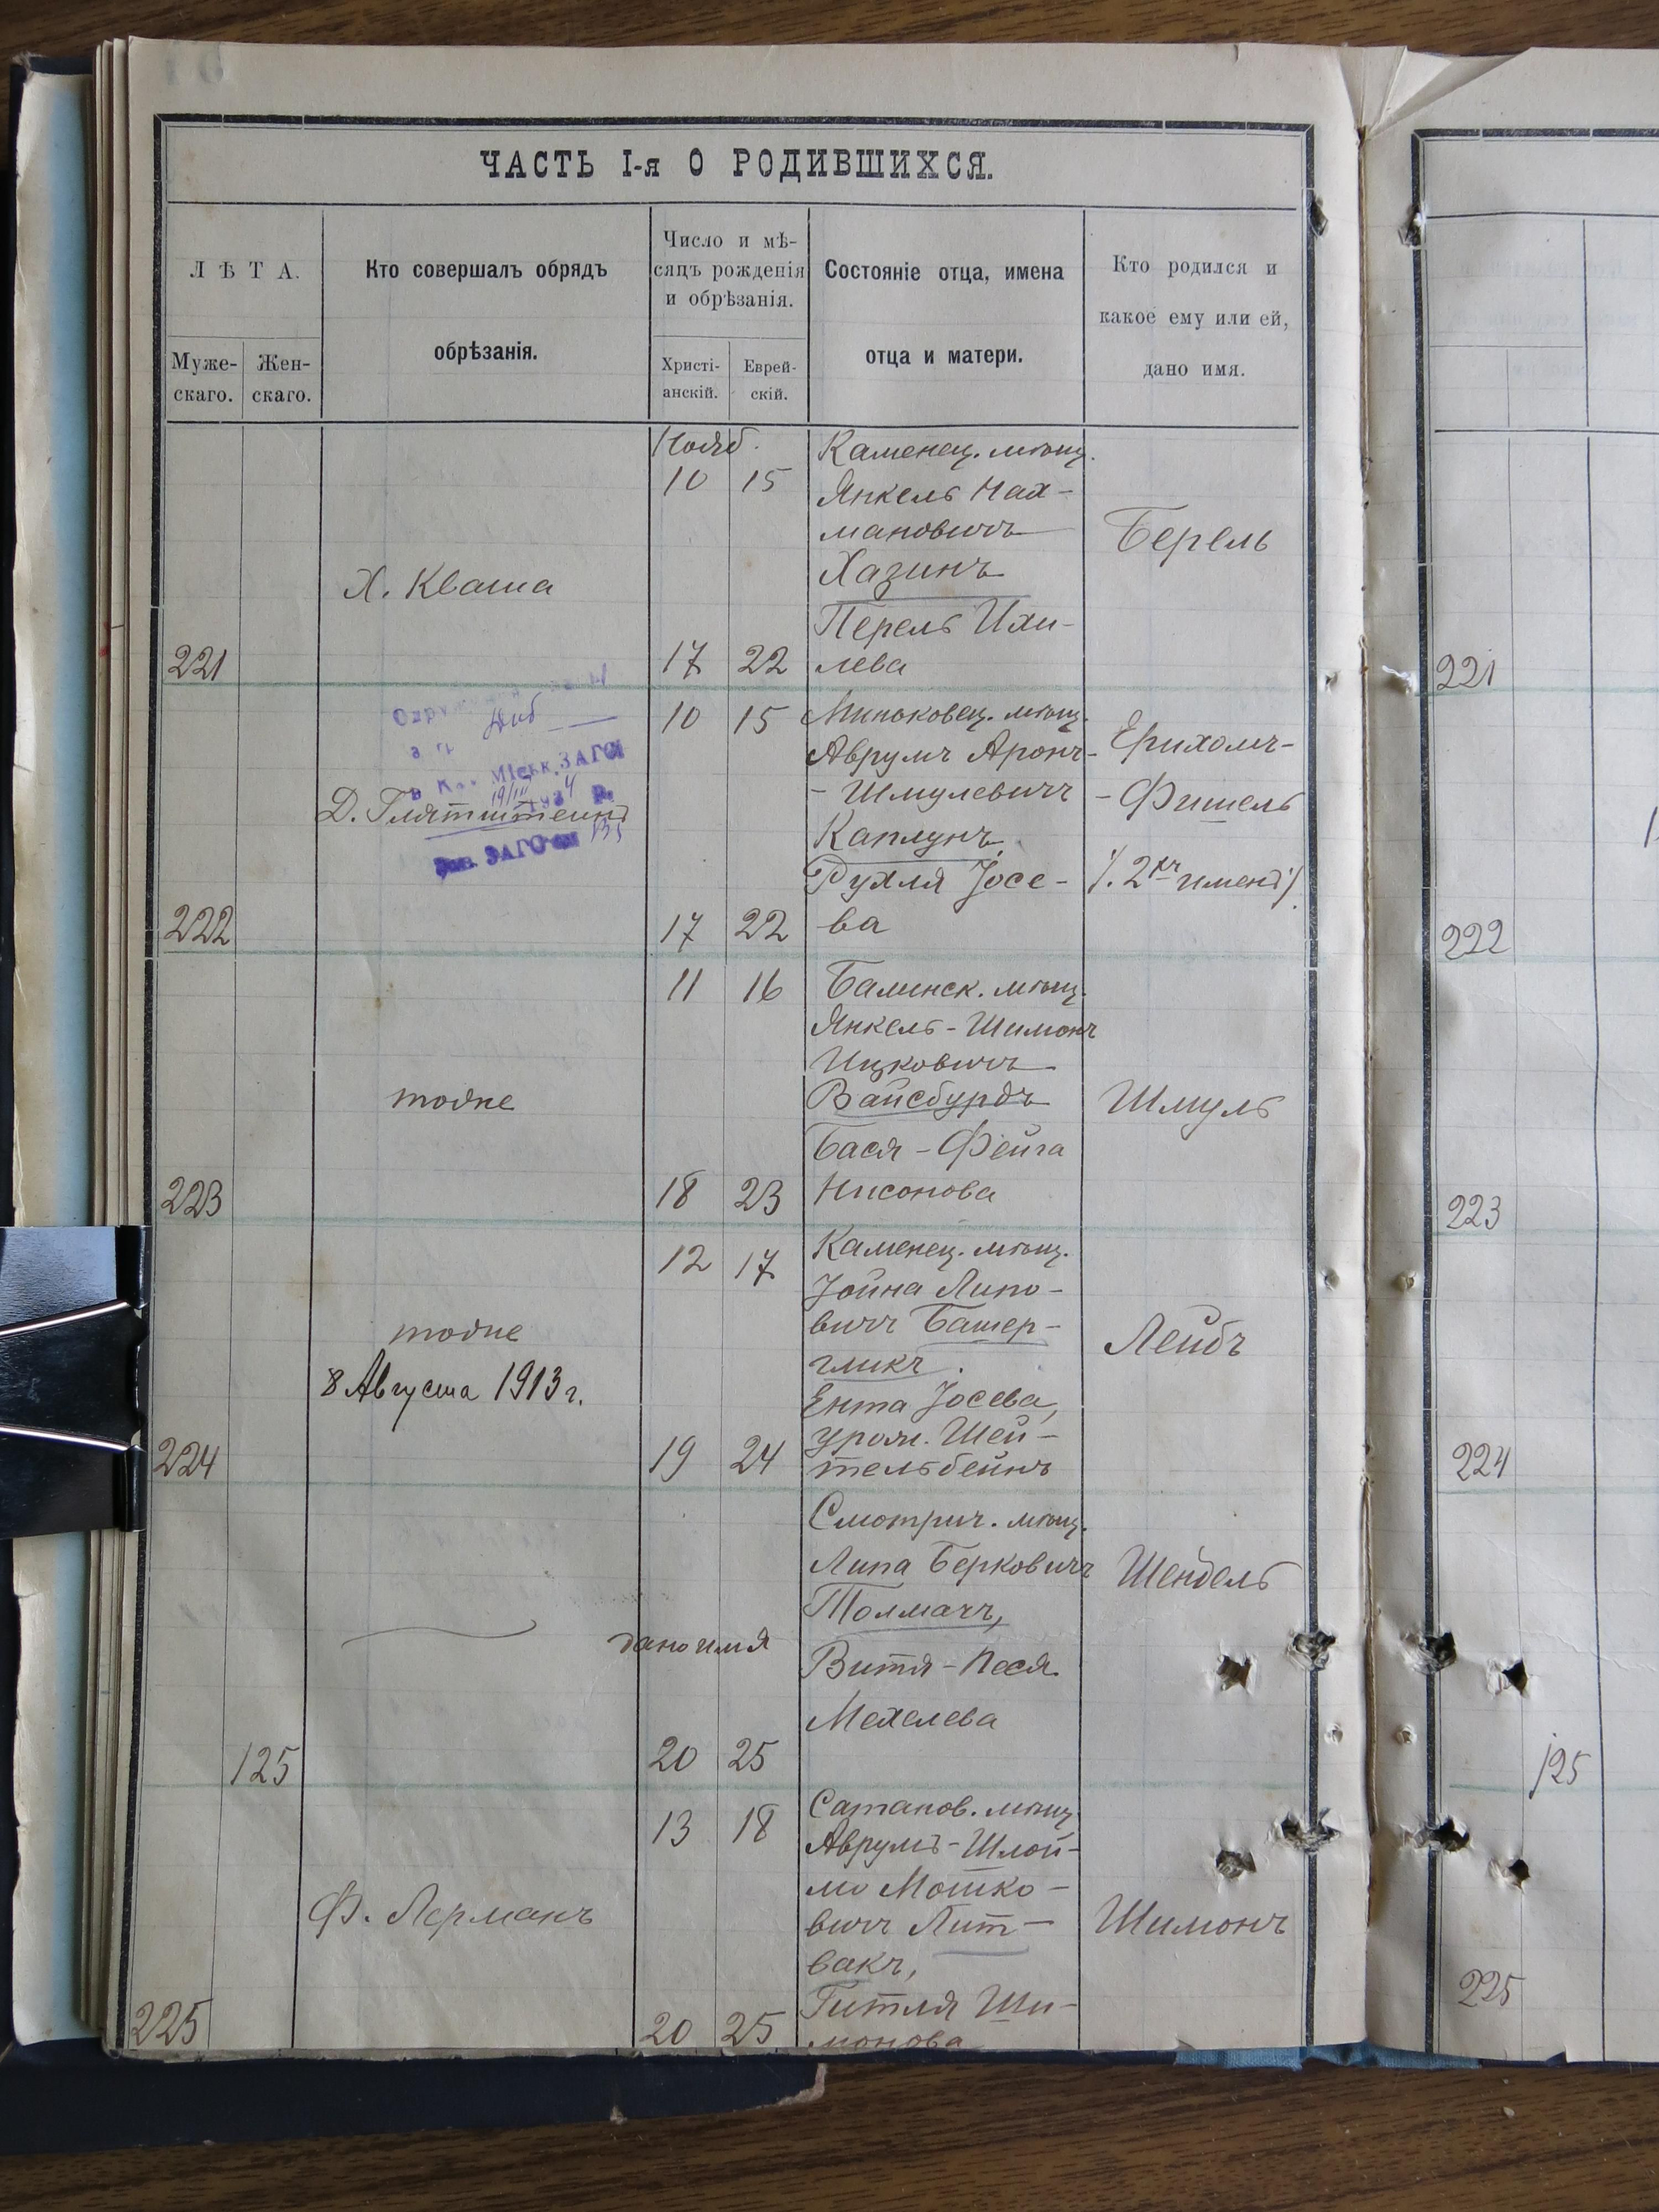 ЧАСТЬ I-я О РОДИВШИХСЯ.
ЛѢТА.
Муже-
скаго.
Жен-
скаго.
Кто совершалъ обрядъ
обрѣзанія.
Число и мѣ-
сяцъ рожденія
и обрѣзанія.
Христі-
анскій.
Еврей-
скій.
Состояніе отца, имена
отца и матери.
Кто родился и
какое ему или ей,
дано имя.
221
Х. Кваша
Нояб.
10 15
17 22
Каменец. мѣщ.
Янкель Нах-
мановичъ
Хазинъ
Перель Ихи-
лева
Берель
222
Міськ. ЗАГС
19/III 1934 р.
Зав. ЗАГС'ом
Д. Глятштейнъ
10 15
17 22
Миньковец. мѣщ.
Аврумъ Аронъ-
- Шмулевичъ
Каплунъ
Рухля Іосе-
ва
Ерихомъ-
- Фишель
/. 2хъ именъ /.
223
тоже
11 16
18 23
Балинск. мѣщ.
Янкель - Шимонъ
Ицковичъ
Вайсбурдъ
Бася - Фейга
Нисонова
Шмуль
224
тоже
8 Августа 1913 г.
12 17
19 24
Каменец. мѣщ.
Іойна Липо-
вичъ Башер-
гликъ.
Ента Іосева,
урож. Шей-
тельбейнъ
Лейбъ
125
дано имя
20 25
Смотрич. мѣщ.
Липа Берковичъ
Толмачъ,
Витя - Песя
Мехелева
Шендель
225
Ф. Лерманъ
13 18
20 25
Сатанов. мѣщ.
Аврумъ - Шлой-
мо Мошко-
вичъ Лит-
вакъ,
Гитля Ши-
монова
Шимонъ
221
222
223
224
125
225